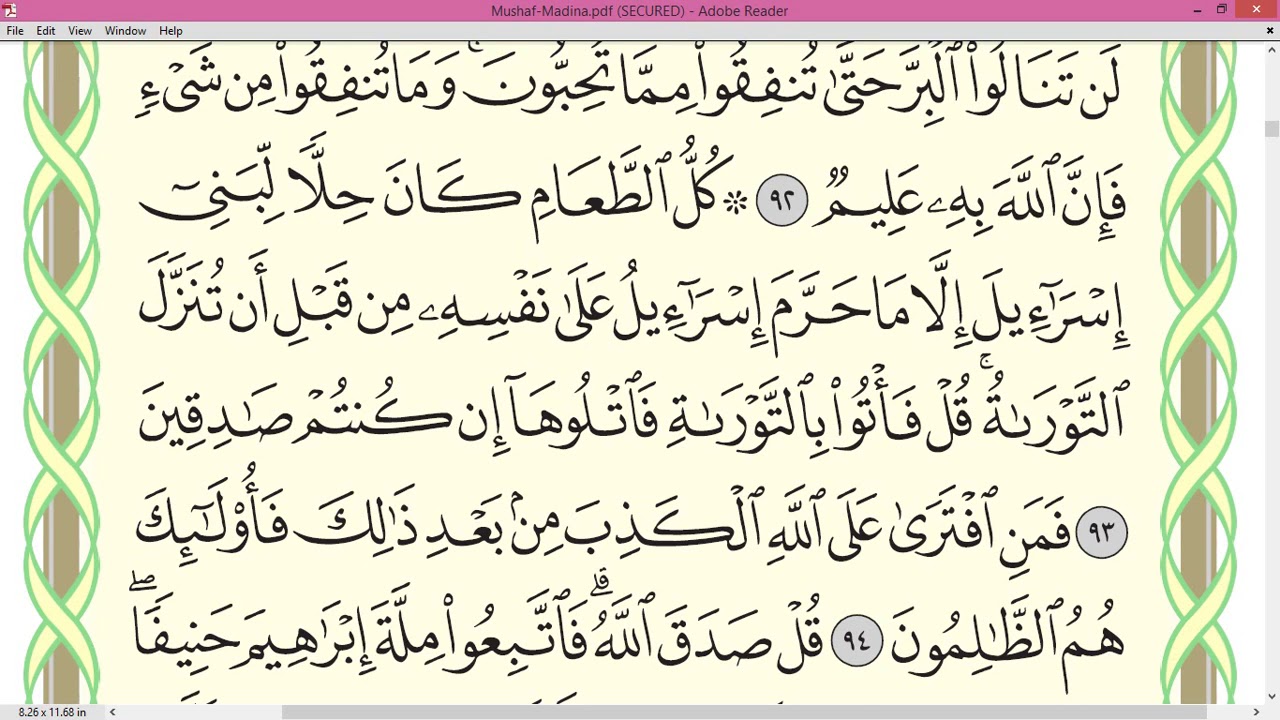 Mushaf-Madina.pdf (SECURED) - Adobe Reader
File Edit View Window Help
لَن تَنَالُوا۟ ٱلْبِرَّ حَتَّىٰ تُنفِقُوا۟ مِمَّا تُحِبُّونَ ۚ وَمَا تُنفِقُوا۟ مِن شَىْءٍ
فَإِنَّ ٱللَّهَ بِهِۦ عَلِيمٌ ٩٢ ۞ كُلُّ ٱلطَّعَامِ كَانَ حِلًّا لِّبَنِىٓ
إِسْرَٰٓءِيلَ إِلَّا مَا حَرَّمَ إِسْرَٰٓءِيلُ عَلَىٰ نَفْسِهِۦ مِن قَبْلِ أَن تُنَزَّلَ
ٱلتَّوْرَىٰةُ ۗ قُلْ فَأْتُوا۟ بِٱلتَّوْرَىٰةِ فَٱتْلُوهَآ إِن كُنتُمْ صَـٰدِقِينَ
٩٣ فَمَنِ ٱفْتَرَىٰ عَلَى ٱللَّهِ ٱلْكَذِبَ مِنۢ بَعْدِ ذَٰلِكَ فَأُو۟لَـٰٓئِكَ
هُمُ ٱلظَّـٰلِمُونَ ٩٤ قُلْ صَدَقَ ٱللَّهُ ۗ فَٱتَّبِعُوا۟ مِلَّةَ إِبْرَٰهِيمَ حَنِيفًا ۖ
8.26 x 11.68 in